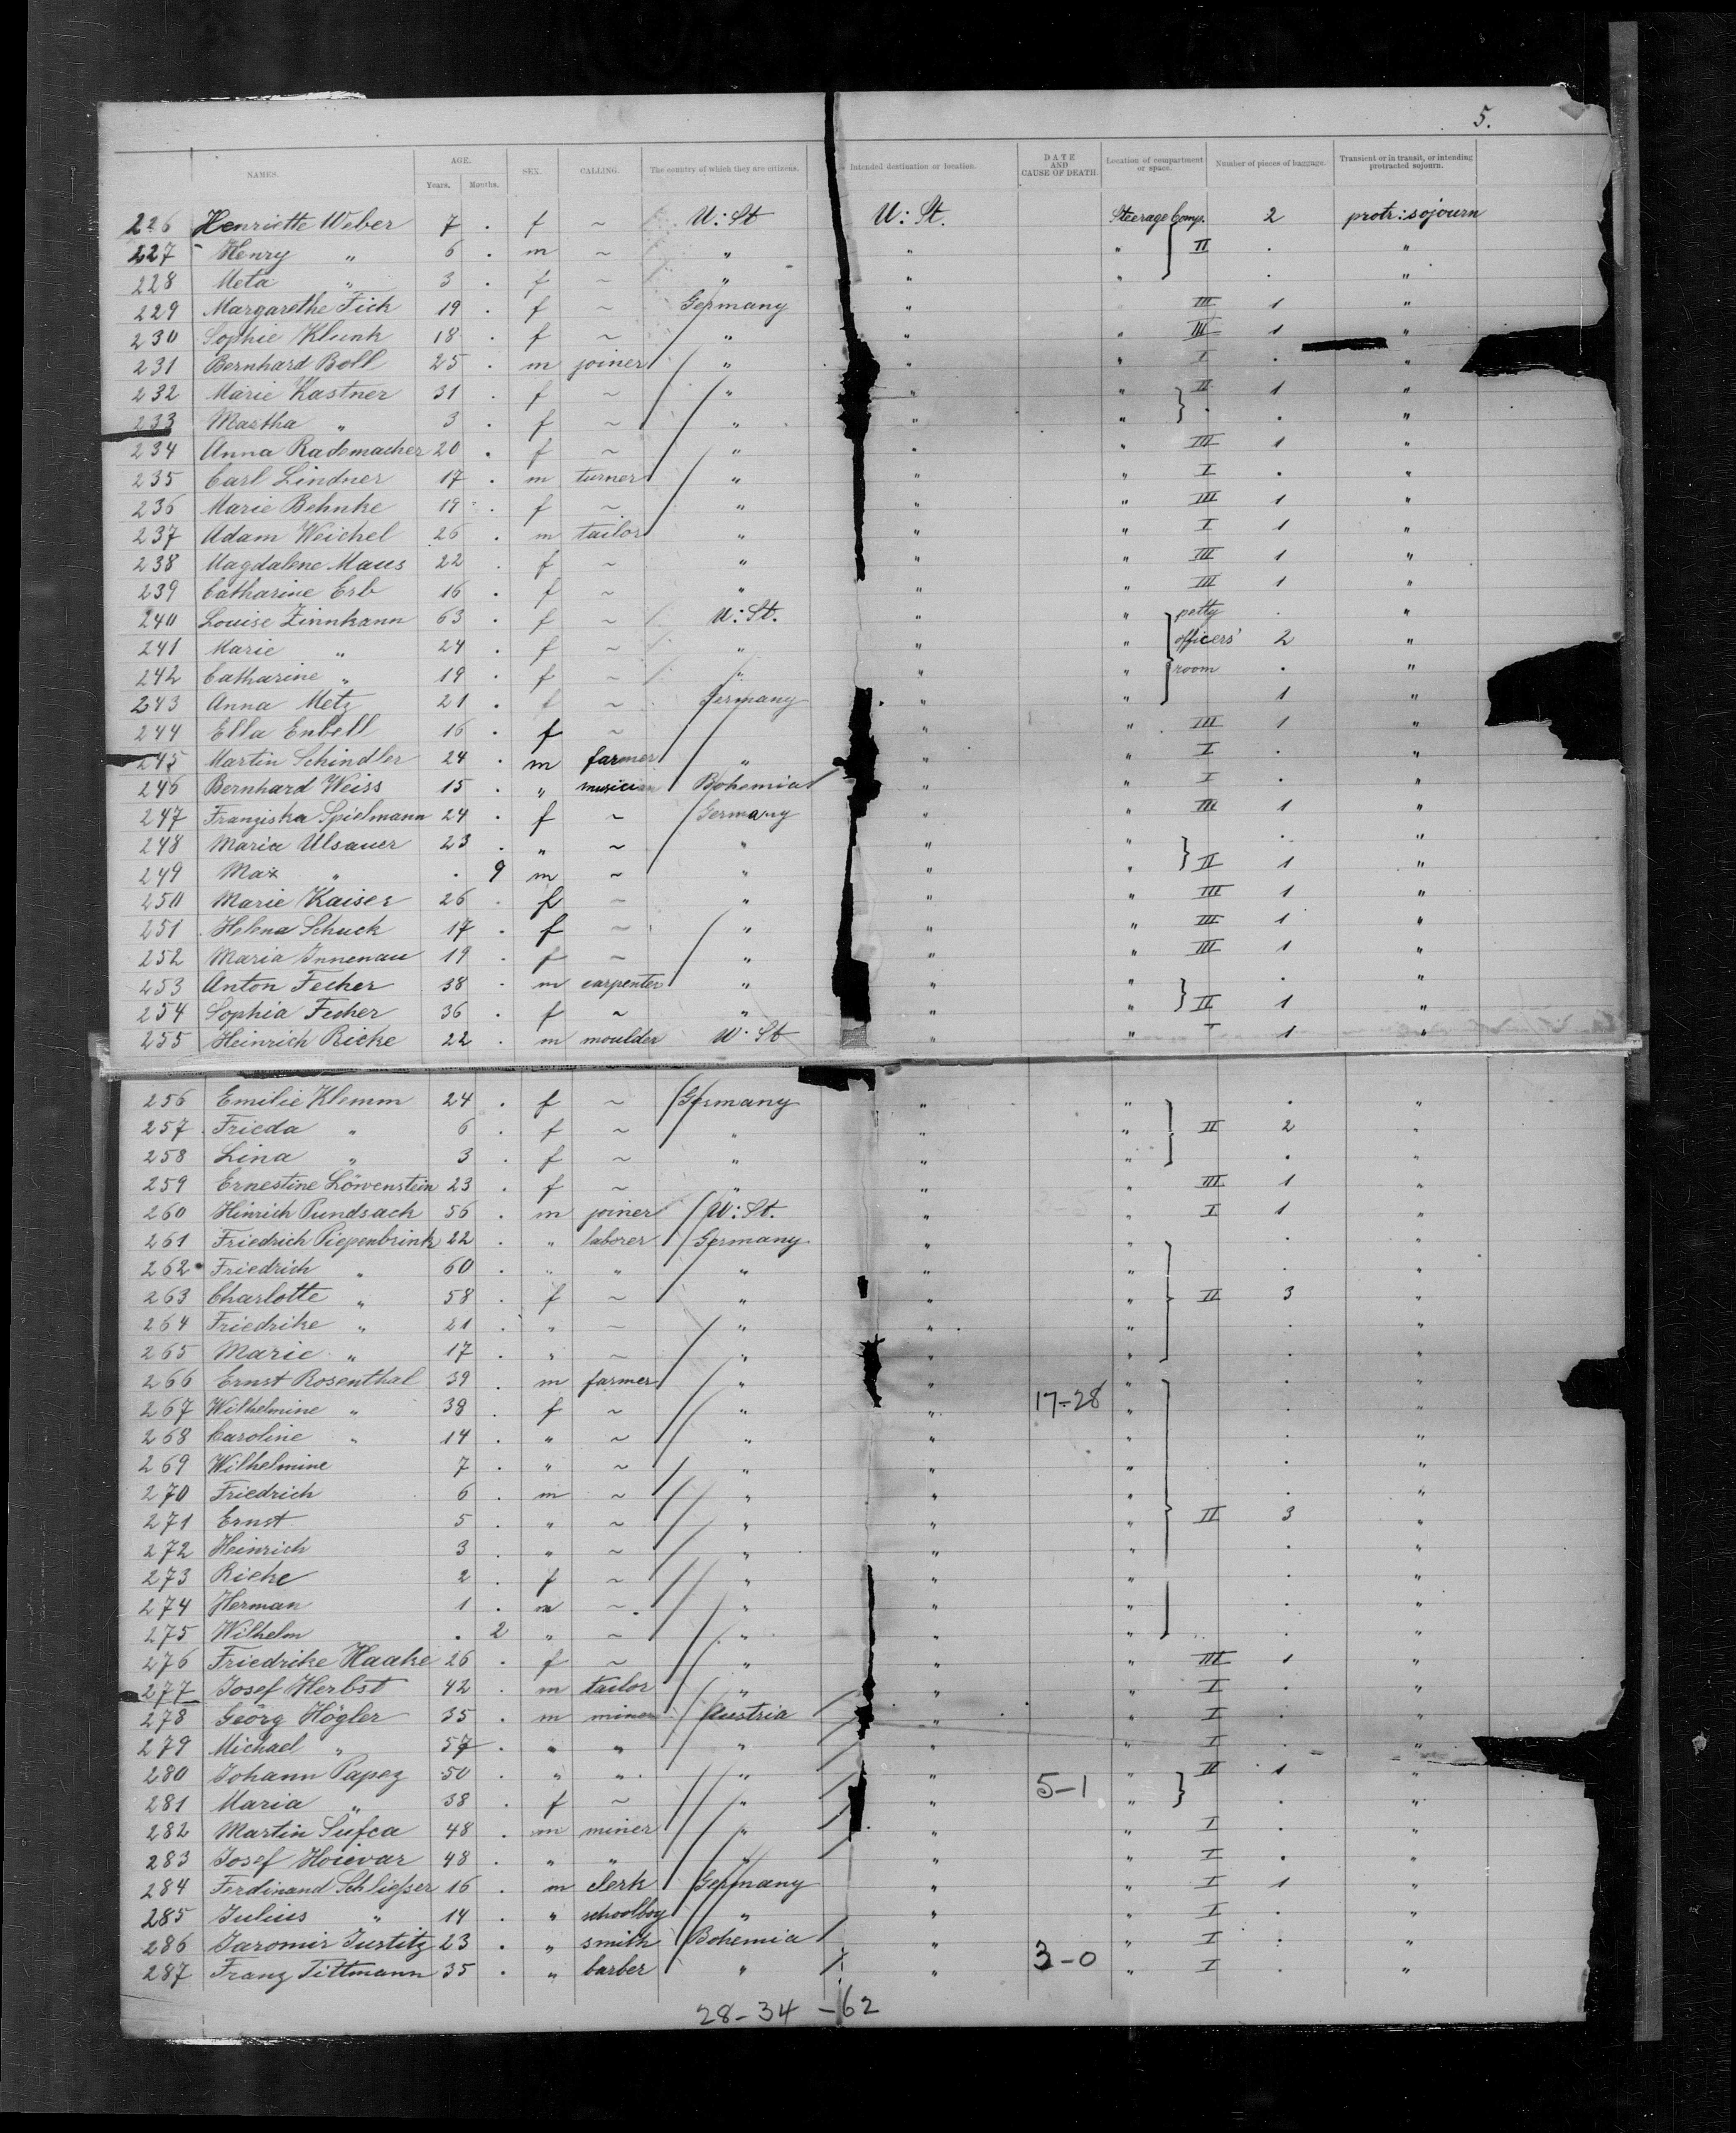 5.
NAMES. AGE. Years. Months. SEX. CALLING. The country of which they are citizens. Intended destination or location. DATE AND CAUSE OF DEATH. Location of compartment or space. Number of pieces of baggage. Transient or in transit, or intending protracted sojourn.
226 Henriette Weber 7 . f ~ U: St U: St. Steerage Comp. 2 protr: sojourn
227 Henry " 6 . m ~ " " " II . "
228 Meta " 3 . f ~ " " " . "
229 Margarethe Fick 19 . f ~ Germany " III 1 "
230 Sophie Klunk 18 . f ~ " " " III 1 "
231 Bernhard Boll 25 . m joiner " " " I . "
232 Marie Kastner 31 . f ~ " " " II 1 "
233 Martha " 3 . f ~ " " " . . "
234 Anna Rademacher 20 . f ~ " " " III 1 "
235 Carl Lindner 17 . m turner " " " I . "
236 Marie Behnke 19 . f ~ " " " III 1 "
237 Adam Weichel 26 . m tailor " " " I 1 "
238 Magdalene Maus 22 . f ~ " " " III 1 "
239 Catharine Erb 16 . f ~ " " " III 1 "
240 Louise Zinnkann 63 . f ~ U: St. " " petty . "
241 Marie " 24 . f ~ " " " officers' 2 "
242 Catharine " 19 . f ~ " " " room . "
243 Anna Metz 21 . f ~ Germany " " 1 "
244 Ella Enbell 16 . f ~ " " III 1 "
245 Martin Schindler 24 . m farmer " " " I . "
246 Bernhard Weiss 15 . " musician Bohemia " " I . "
247 Franziska Spielmann 24 . f ~ Germany " " III 1 "
248 Maria Ulsauer 23 . " ~ " " " . "
249 Max " . 9 m ~ " " " II 1 "
250 Marie Kaiser 26 . f ~ " " " III 1 "
251 Helena Schuck 17 . f ~ " " " III 1 "
252 Maria Innenau 19 . f ~ " " " III 1 "
253 Anton Fecher 38 . m carpenter " " " . "
254 Sophia Fecher 36 . f ~ " " " II 1 "
255 Heinrich Ricke 22 . m moulder U. St " " I 1 "
256 Emilie Klemm 24 . f ~ Germany " " . "
257 Frieda " 6 . f ~ " " " II 2 "
258 Lina " 3 . f ~ " " " . "
259 Ernestine Löwenstein 23 . f ~ " " " III 1 "
260 Hinrich Pundsack 56 . m joiner U: St. " " I 1 "
261 Friedrich Piepenbrink 22 . " laborer Germany " " . "
262 Friedrich " 60 . " " " " " . "
263 Charlotte " 58 . f ~ " " " II 3 "
264 Friedrike " 21 . " ~ " " " . "
265 Marie " 17 . " ~ " " " . "
266 Ernst Rosenthal 39 . m farmer " " " . "
267 Wilhelmine " 38 . f ~ " " 17-28 " . "
268 Caroline " 14 . " ~ " " " . "
269 Wilhelmine 7 . " ~ " " " . "
270 Friedrich 6 . m ~ " " " . "
271 Ernst 5 . " ~ " " " II 3 "
272 Heinrich 3 . " ~ " " " . "
273 Rieke 2 . f ~ " " " . "
274 Herman 1 . m ~ " " " . "
275 Wilhelm . 2 " ~ " " " . "
276 Friedrike Haake 26 . f ~ " " " III 1 "
277 Josef Herbst 42 . m tailor " " " I . "
278 Georg Högler 35 . m miner Austria " " I . "
279 Michael " 57 . " " " " " I . "
280 Johann Papez 50 . " " " " " II 1 "
281 Maria " 38 . f ~ " " 5-1 " . "
282 Martin Sufca 48 . m miner " " " I . "
283 Josef Hoievar 48 . " " " " " I . "
284 Ferdinand Schließer 16 . m clerk Germany " " I 1 "
285 Julius " 14 . " schoolboy " " " I . "
286 Jaromir Justitz 23 . " smith Bohemia " " I . "
287 Franz Tittmann 35 . " barber " " 3-0 " I . "
28-34-62